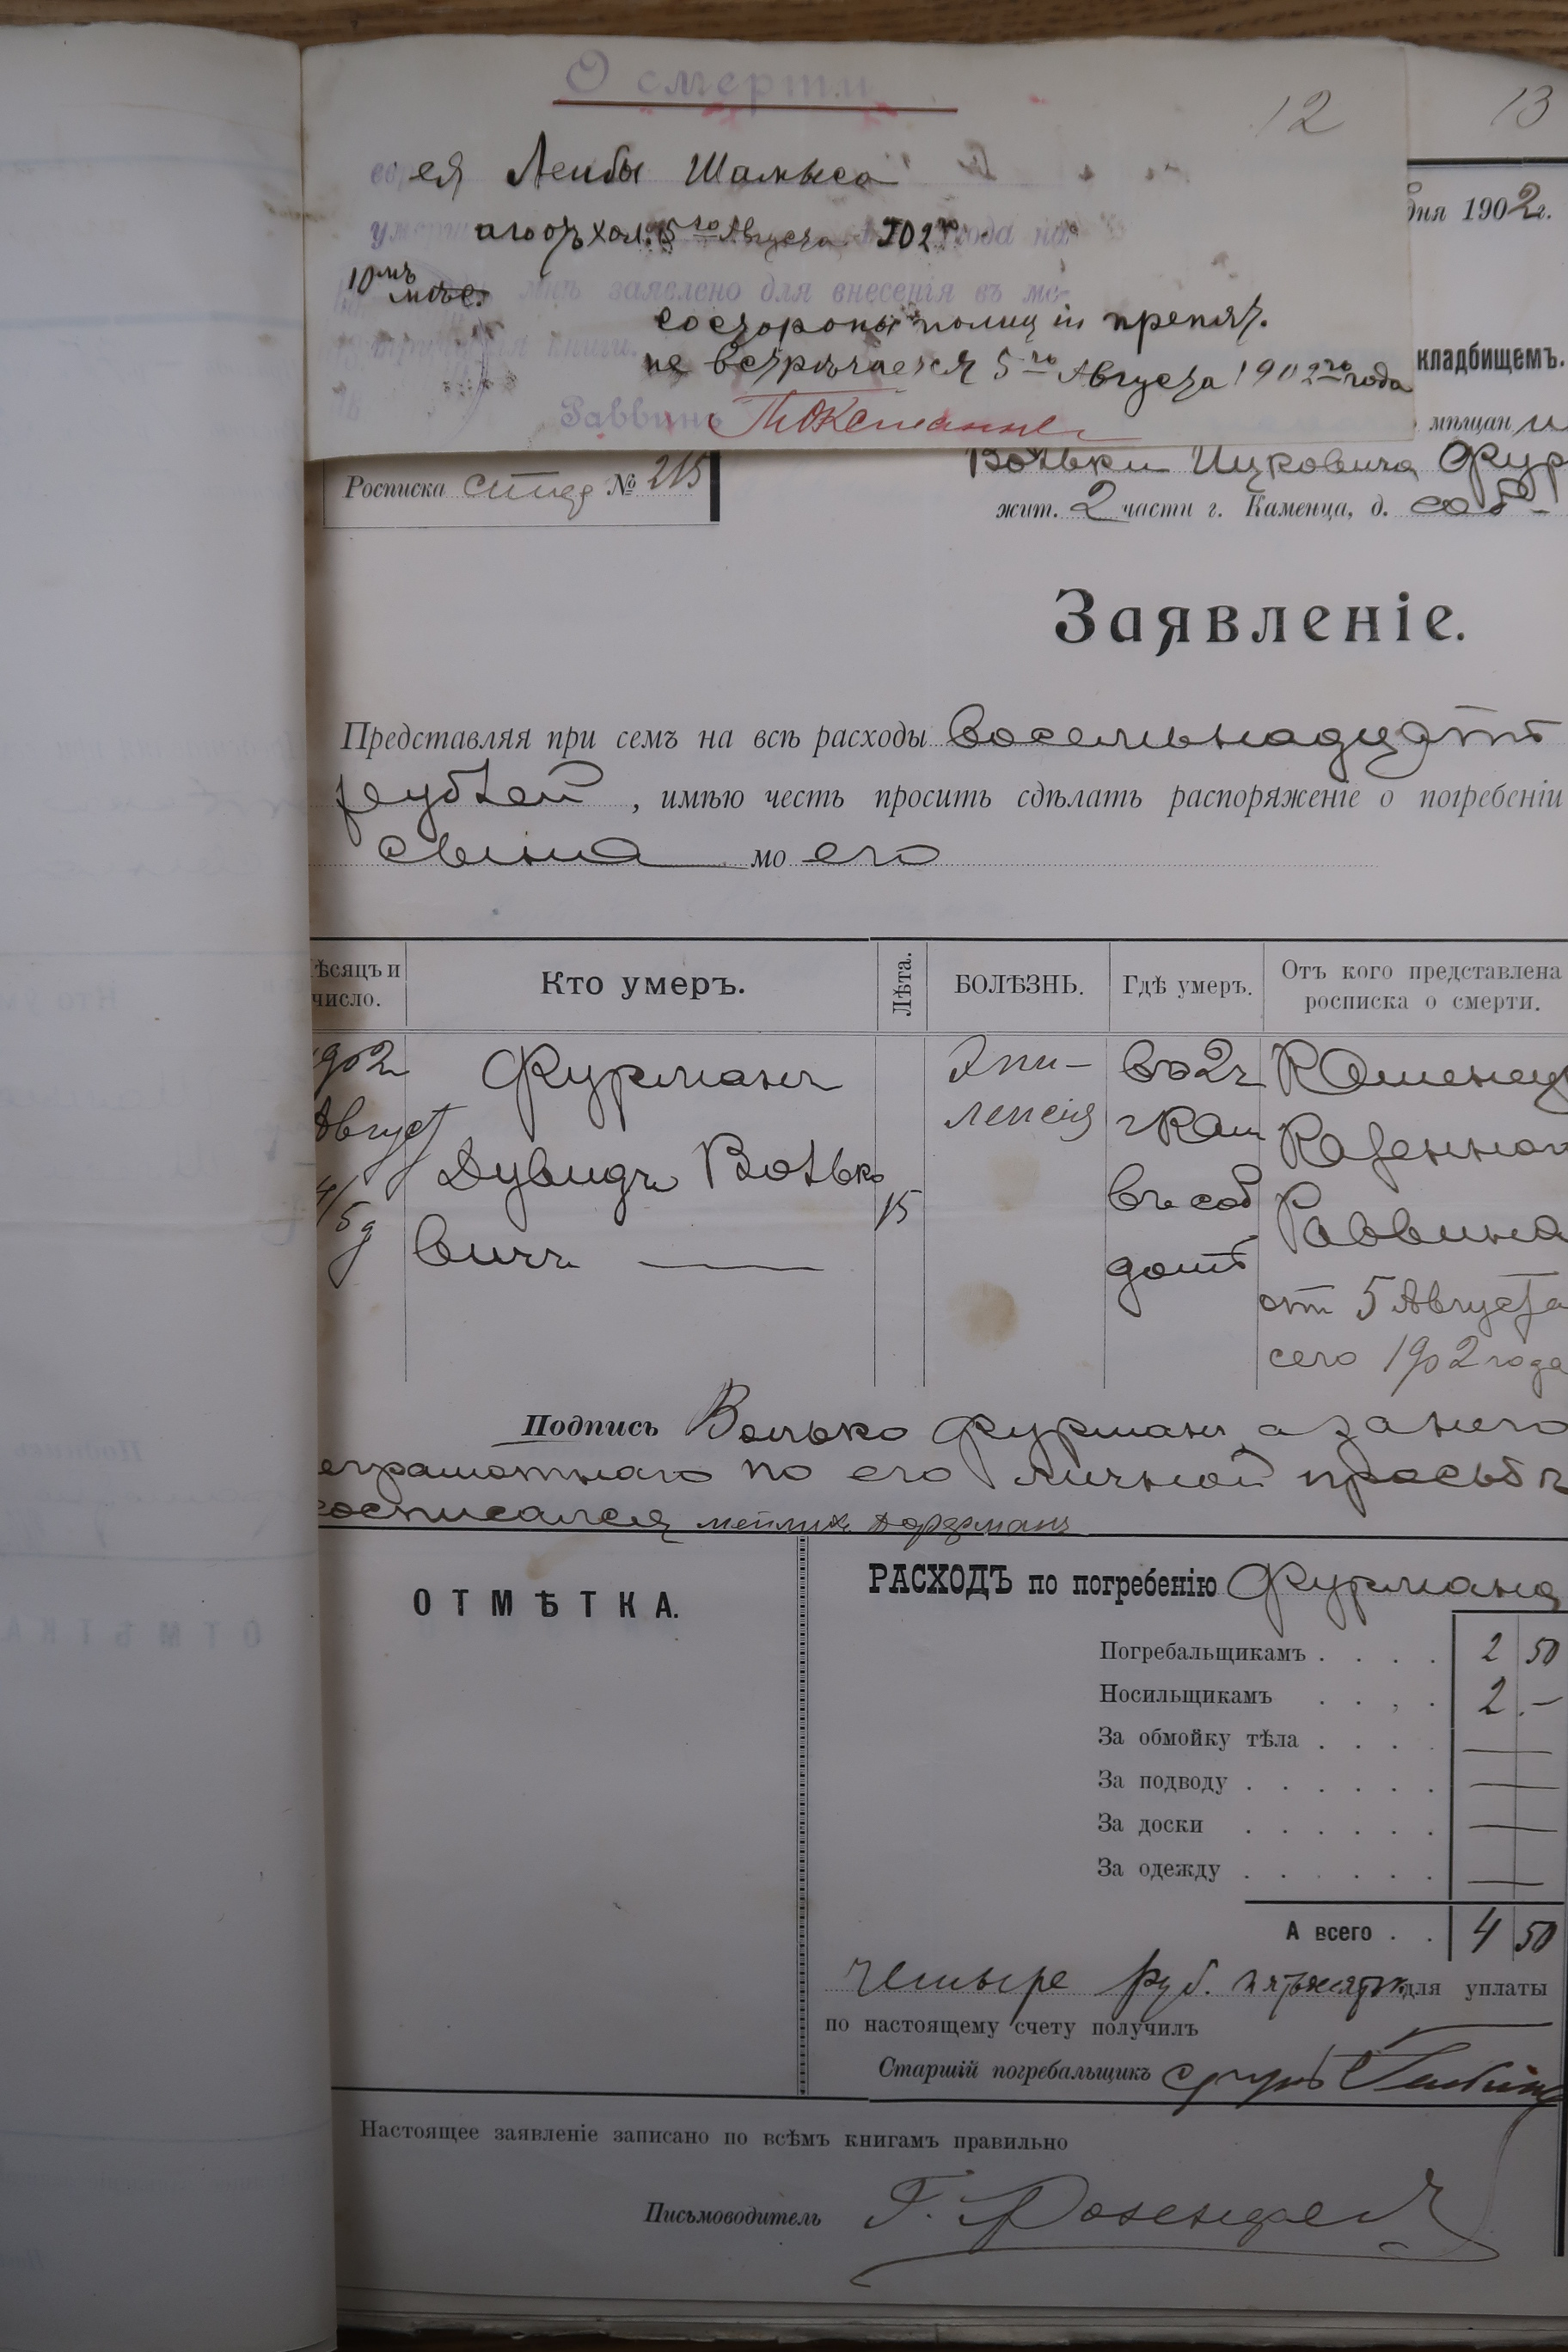 О смерти
12
13
ея Лейбы
умерш 5го Августа
дня 1902 г.
10мъ
мнѣ заявлено для внесенія въ ме-
со стороны полиціи препят.
книги.
не встрѣчается 5го Августа 1902го года
кладбищемъ.
Раввинъ
мѣщан
Волько Ицковича Фур
Росписка № 215
жит. 2 части г. Каменца, д. соб-
Заявленіе.
Представляя при семъ на всѣ расходы восемьнадцать
рублей, имѣю честь просить сдѣлать распоряженіе о погребеніи
сына моего
ѣсяцъ и число.
Кто умеръ.
Лѣта.
БОЛѢЗНЬ.
Гдѣ умеръ.
Отъ кого представлена росписка о смерти.
902
Август
4/5 д
Фурманъ
ДувидъВолько
вичъ
15
Эпи-
лепсія
въ 2ч
г Кам
въ соб
домѣ
Каменец
Казеннаг
Раввина
от 5 Августа
сего 1902 года
Подпись Волько Фурманъ а за него
еграмотнаго по его личной просьбѣ
росписался
ОТМѢТКА.
РАСХОДЪ по погребенію Фурмана
Погребальщикамъ . . . . 2 50
Носильщикамъ . . . . 2 . —
За обмойку тѣла . . . . —
За подводу . . . . . . —
За доски . . . . . . —
За одежду . . . . . . —
А всего . . 4 50
Четыре руб. для уплаты
по настоящему счету получилъ
Старшій погребальщикъ
Настоящее заявленіе записано по всѣмъ книгамъ правильно
Письмоводитель